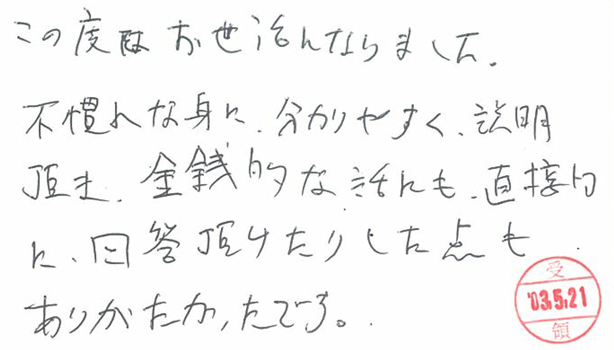 この度はお世話になりました。
不慣れな身に、分かりやすく、説明
頂き、金銭的な話にも、直接的
に、回答頂けたりした点も
ありがたかったです。
受
'03.5.21
領